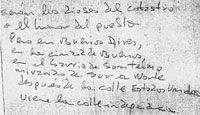 seran los dioses del catastro
o el humor del pueblo
Pero en Buenos Aires,
en la ciudad de Buenos
en el barrio de San Telmo
mirando de Sur a Norte
después de la calle Estados Unidos
viene la calle independencia.